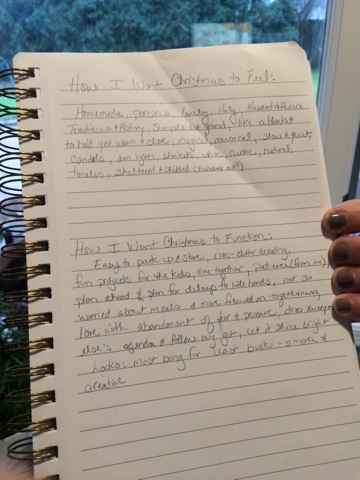 How I Want Christmas to Feel:
Homemade, precious, family, Holy,
Traditions + History, Simple yet grand, like a blanket
to hold you warm + close, magical, musical, slow & quiet,
candles, dim lights, blankets, white, rustic, natural,
timeless, sheltered + shielded
How I Want Christmas to Function:
Easy to pack up & store, non-clutter creating,
fun projects for the kids, time together, patience (from me),
plan ahead & plan for delays for little hands, not so
worried about meals & more focused on togetherness,
love with abandonment of fear & pressure, drop everyone
else's agenda & follow my gut, let it shine bright
most bang for least buck - simple &
creative